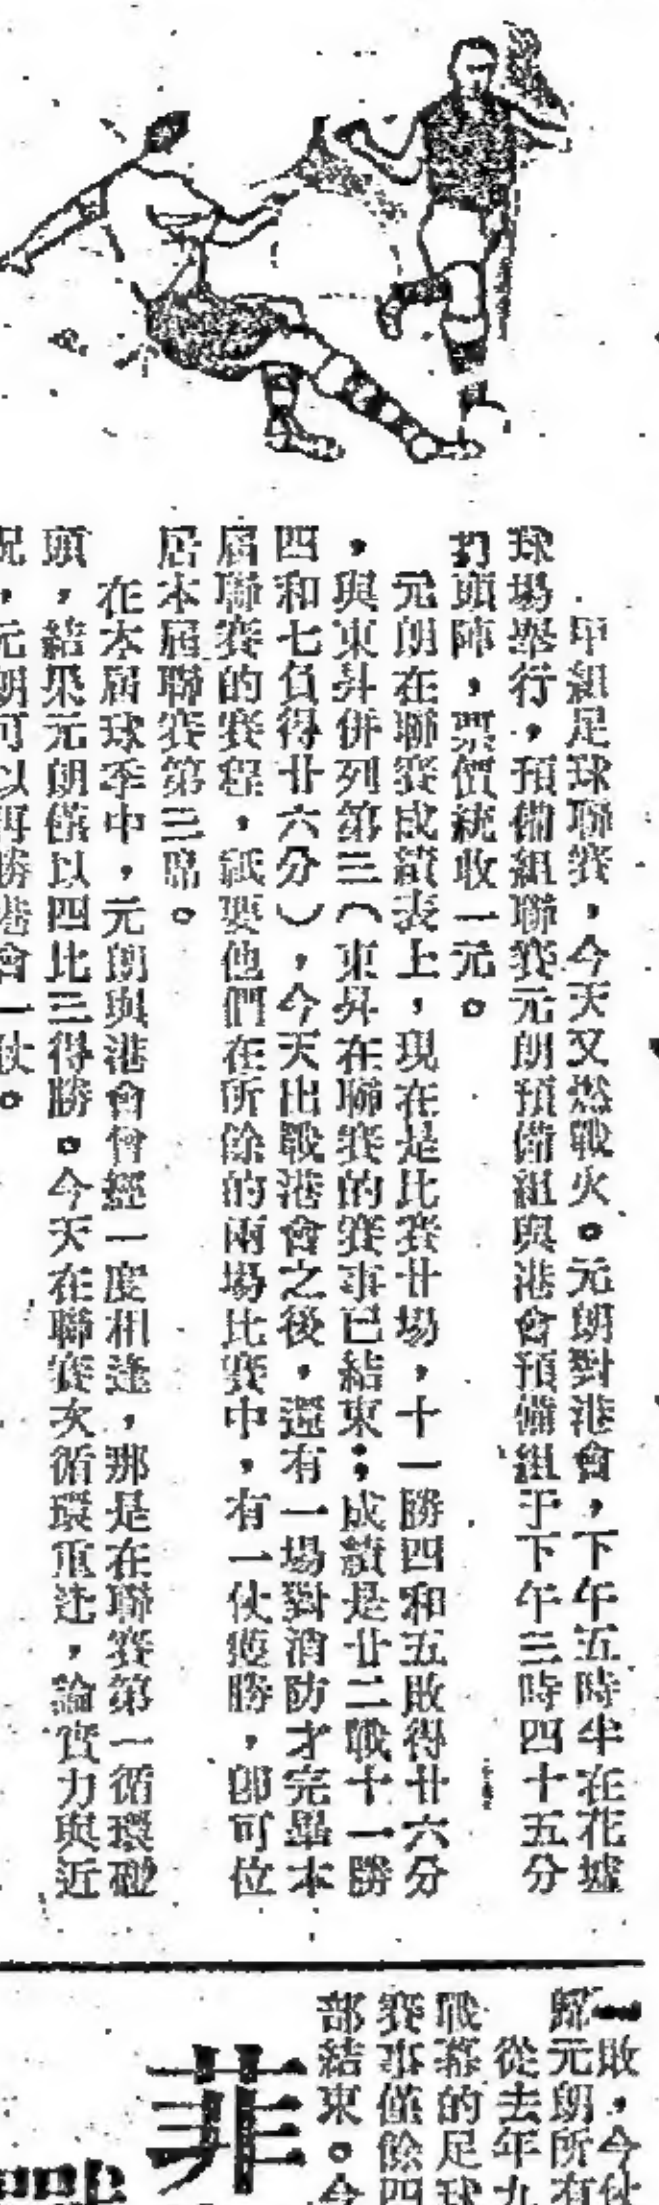 甲組足球聯賽，今天又燃戰火。元朗對港會，下午五時半在花墟
球場舉行，預備組聯賽元朗預備組與港會預備組于下午三時四十五分
打頭陣，票價統收一元。
元朗在聯賽成績表上，現在是比賽廿場，十一勝四和五敗得廿六分
，與東昇併列第三（東昇在聯賽的賽事已結束；成績是廿二戰十一勝
四和七負得廿六分），今天出戰港會之後，還有一場對消防才完畢本
屆聯賽的賽程，祇要他們在所餘的兩場比賽中，有一仗獲勝，即可位
居本屆聯賽第三席。
在本屆球季中，元朗與港會曾經一度相逢，那是在聯賽第一循環碰
頭，結果元朗僅以四比三得勝。今天在聯賽次循環重逢，論實力與近
況，元朗可以再勝港會一仗。
一敗，今仗
歸元朗所有
從去年九
戰幕的足球
賽事僅餘四
部結束。今
菲